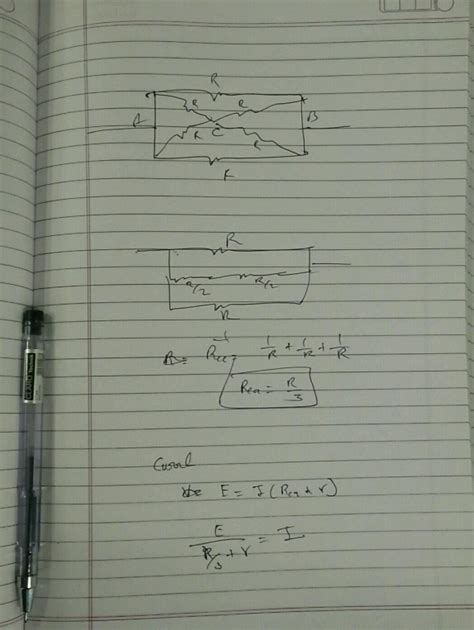 R
R R
A B
R C R
R
R
R/2 R/2
R
1/Req = 1/R + 1/R + 1/R
Req = R/3
E = I (Req + r)
E/(R/3 + r) = I